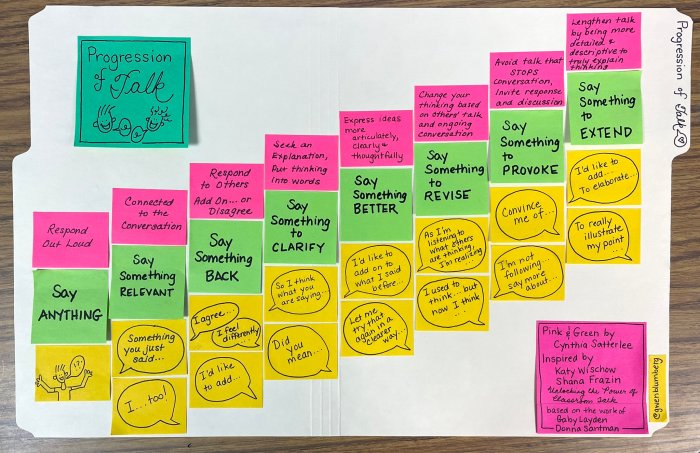 Progression
of Talk
Respond
Out Loud
Say
ANYTHING
!?!
Connected
to the
Conversation
Say
Something
RELEVANT
Something
you just
said...
I...too!
Respond
to Others
Add On... or
Disagree
Say
Something
BACK
I agree...
I feel
differently...
I'd like
to add...
Seek an
Explanation,
Put thinking
into words
Say
Something
to
CLARIFY
So I think
what you
are saying...
Did
you
mean...
Express ideas
more
articulately,
clearly &
thoughtfully
Say
Something
BETTER
I'd like to
add on to
what I said
before...
Let me
try that
again in a
clearer
way...
Change your
thinking based
on others' talk
and ongoing
conversation
Say
Something
to
REVISE
As I'm
listening to
what others
are thinking,
I'm realizing
I used to
think... but
now I think
...
Avoid talk that
STOPS
conversation,
invite response
and discussion
Say
Something
to
PROVOKE
Convince
me of...
I'm not
following...
say more
about...
Lengthen talk
by being more
detailed &
descriptive to
truly explain
thinking
Say
Something
to
EXTEND
I'd like to
add...
To elaborate...
To really
illustrate
my point
Progression of Talk
Pink & Green by
Cynthia Satterlee
Inspired by
Katy Wischow
Shana Frazin
Unlocking the Power of
Classroom Talk
based on the work of
Gaby Layden
Donna Santman
@gwenblumberg